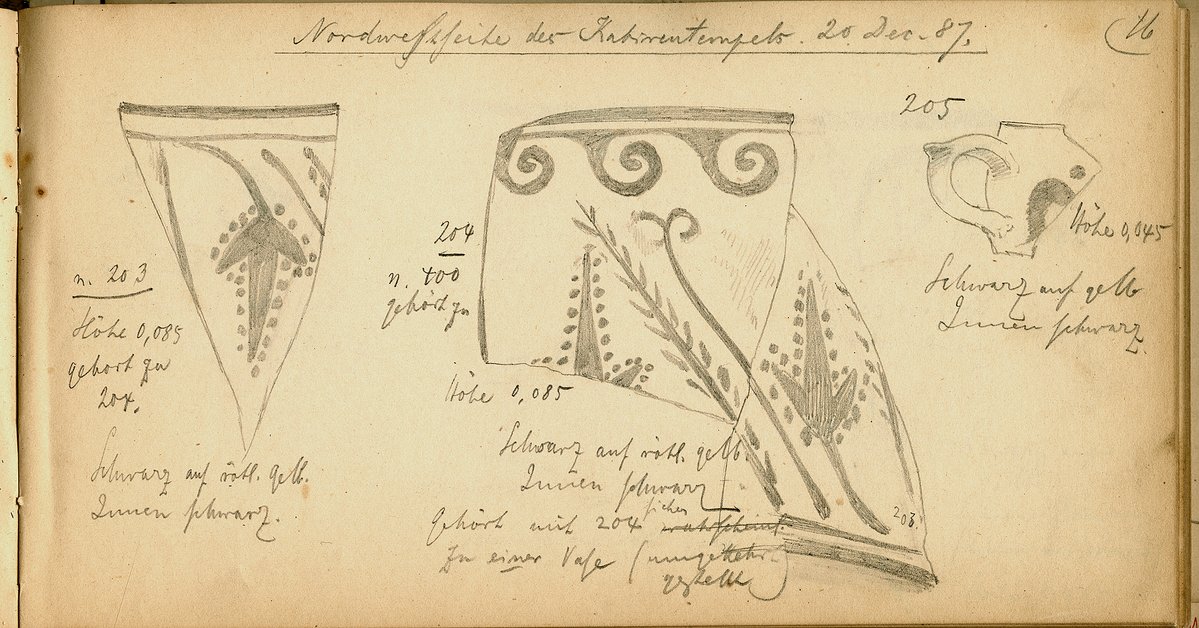 Nordwestseite des Kabirentempels. 20 Dec. 87.
16
n. 203
Höhe 0,085
gehört zu
204.
Schwarz auf rötl. gelb.
Innen schwarz.
204
n. 400
gehört zu
Höhe 0,085
Schwarz auf rötl. gelb.
Innen schwarz
Gehört mit 204 sicher wahrscheinl.
zu einer Vase (umgekehrt
gestellt)
203.
205
Höhe 0,045
Schwarz auf gelb
Innen schwarz.